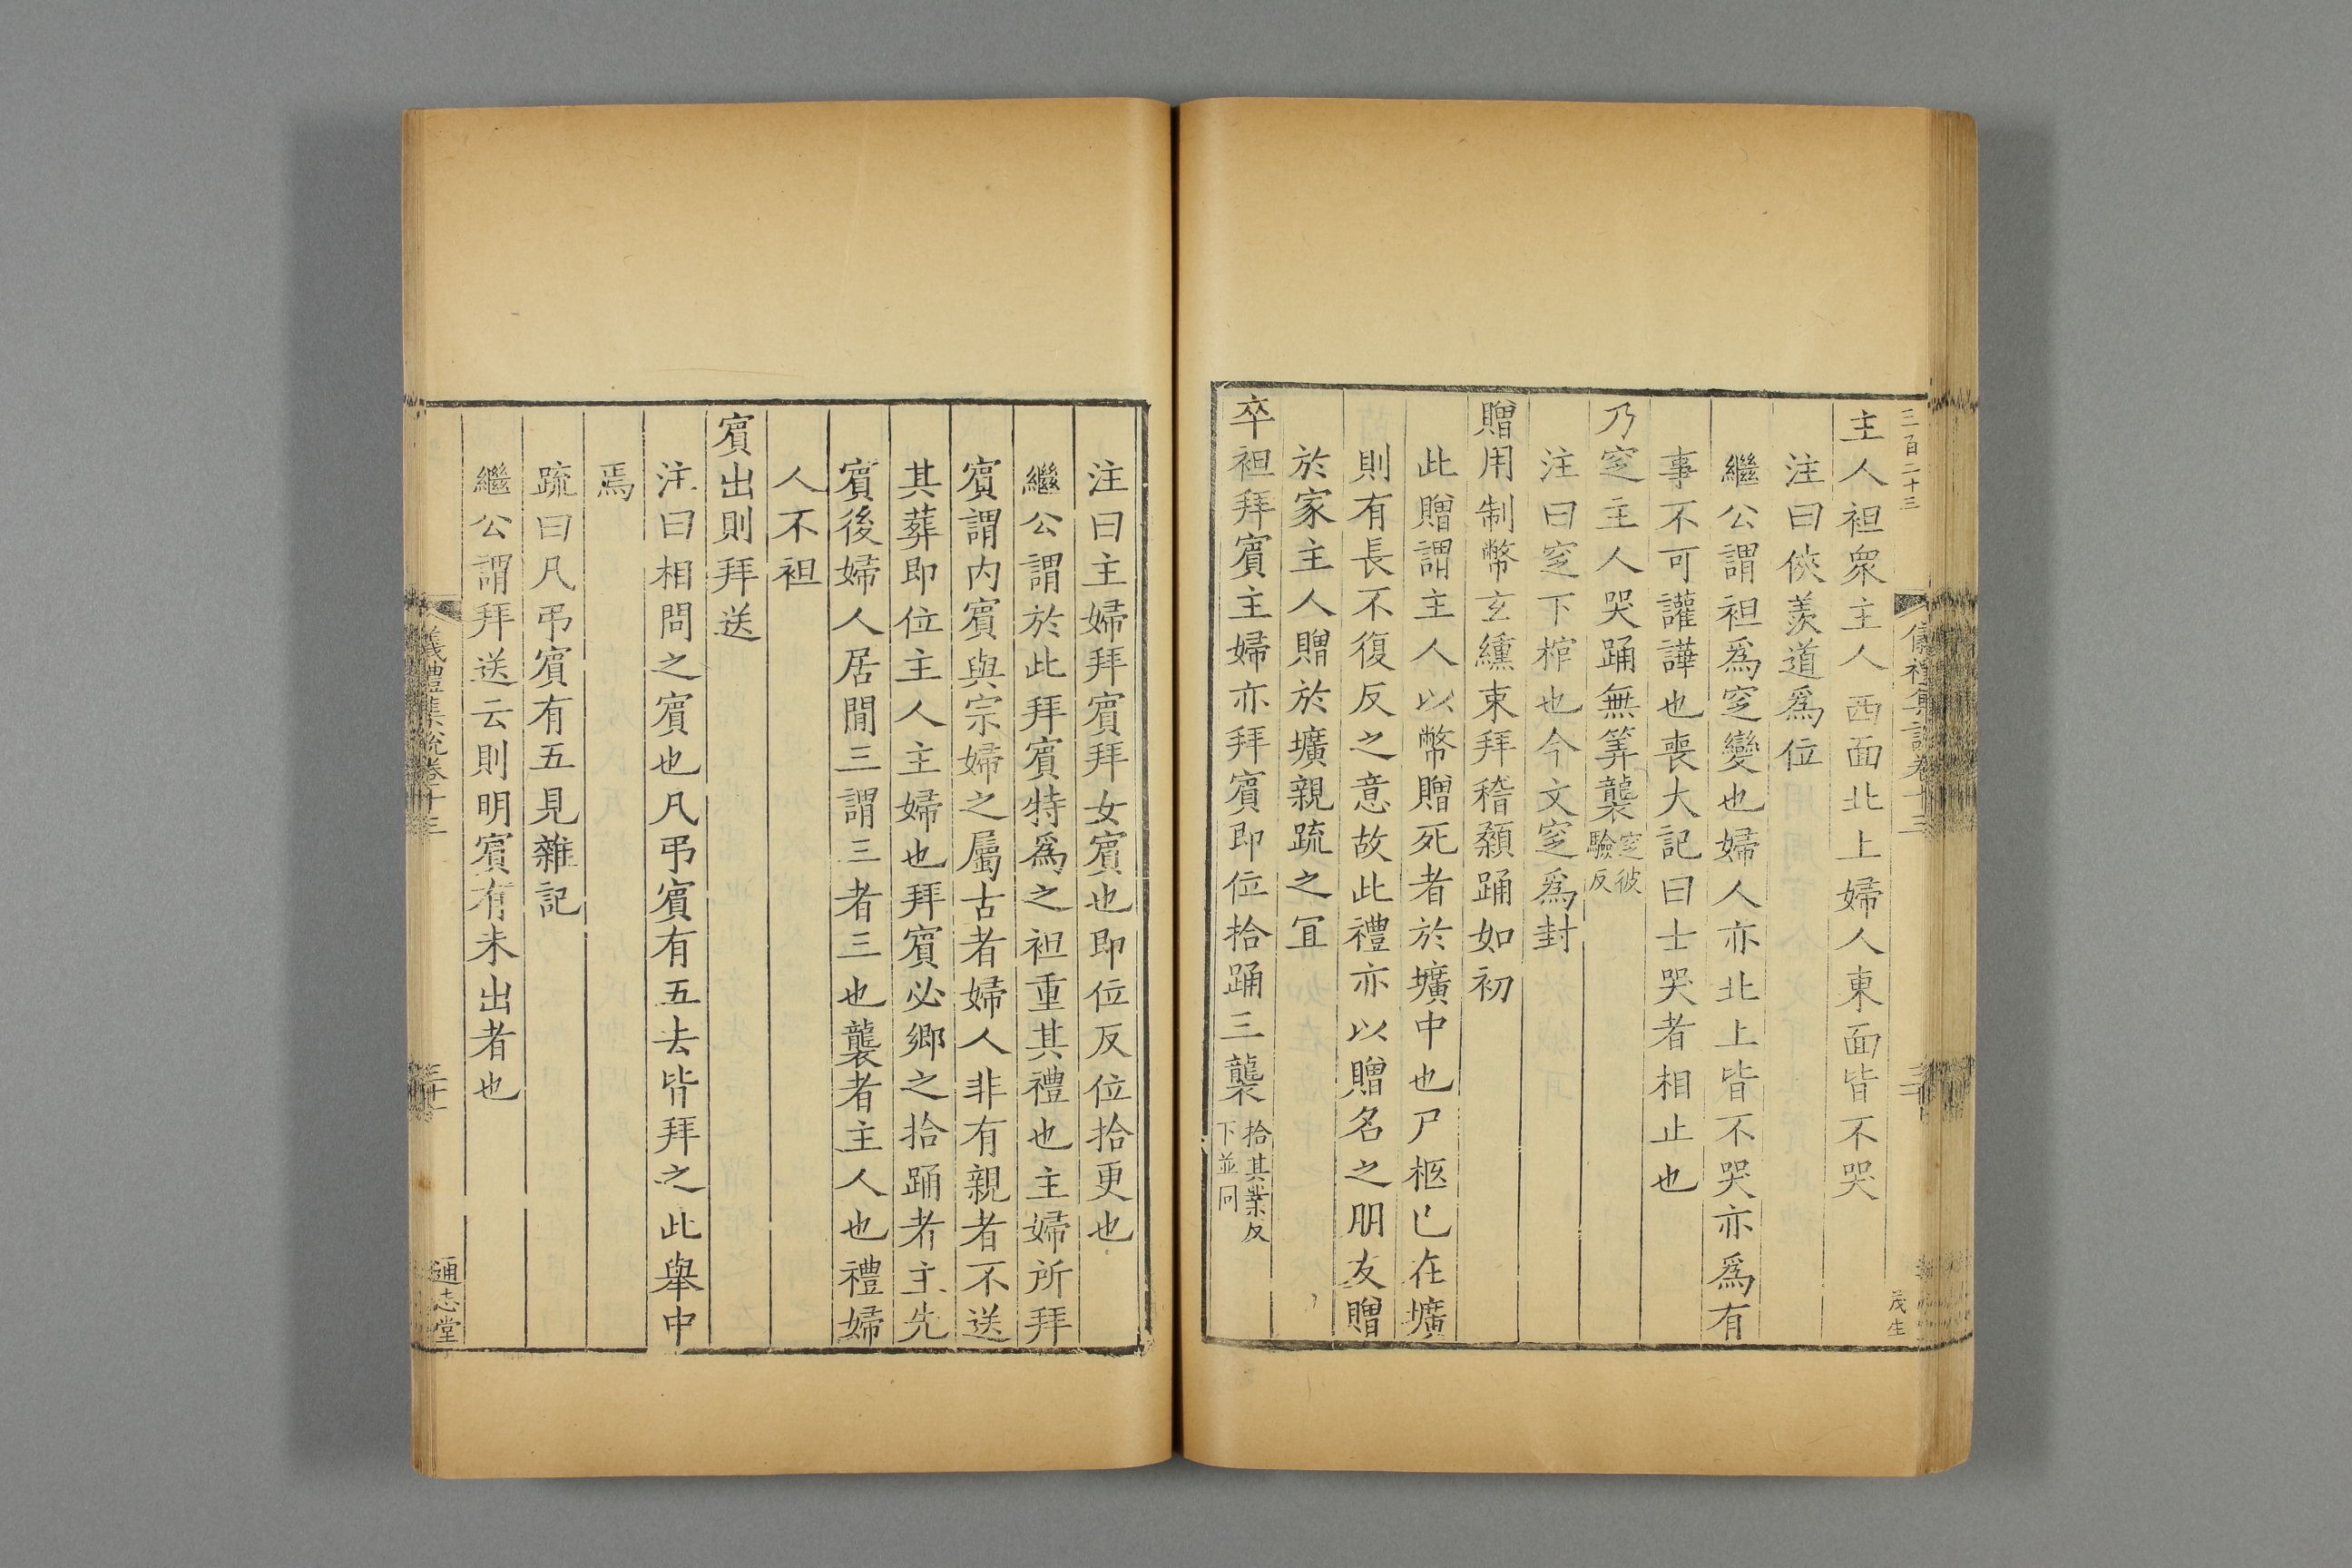 三百二十三
儀禮集說卷十三
茂生
主人袒衆主人西面北上婦人東面皆不哭
注曰俠羨道爲位
繼公謂袒爲窆變也婦人亦北上皆不哭亦爲有
事不可讙譁也喪大記曰士哭者相止也
乃窆主人哭踊無筭襲窆彼驗反
注曰窆下棺也今文窆爲封
贈用制幣玄纁束拜稽顙踊如初
此贈謂主人以幣贈死者於壙中也尸柩已在壙
則有長不復反之意故此禮亦以贈名之朋友贈
於家主人贈於壙親疏之冝
卒袒拜賓主婦亦拜賓即位拾踊三襲拾其業反下並同
注曰主婦拜賓拜女賓也即位反位拾更也
繼公謂於此拜賓特爲之袒重其禮也主婦所拜
賓謂内賓與宗婦之屬古者婦人非有親者不送
其葬即位主人主婦也拜賓必鄉之拾踊者主先
賓後婦人居閒三謂三者三也襲者主人也禮婦
人不袒
賓出則拜送
注曰相問之賓也凡弔賓有五去皆拜之此舉中
焉
疏曰凡弔賓有五見雜記
繼公謂拜送云則明賓有未出者也
儀禮集說卷十三
通志堂